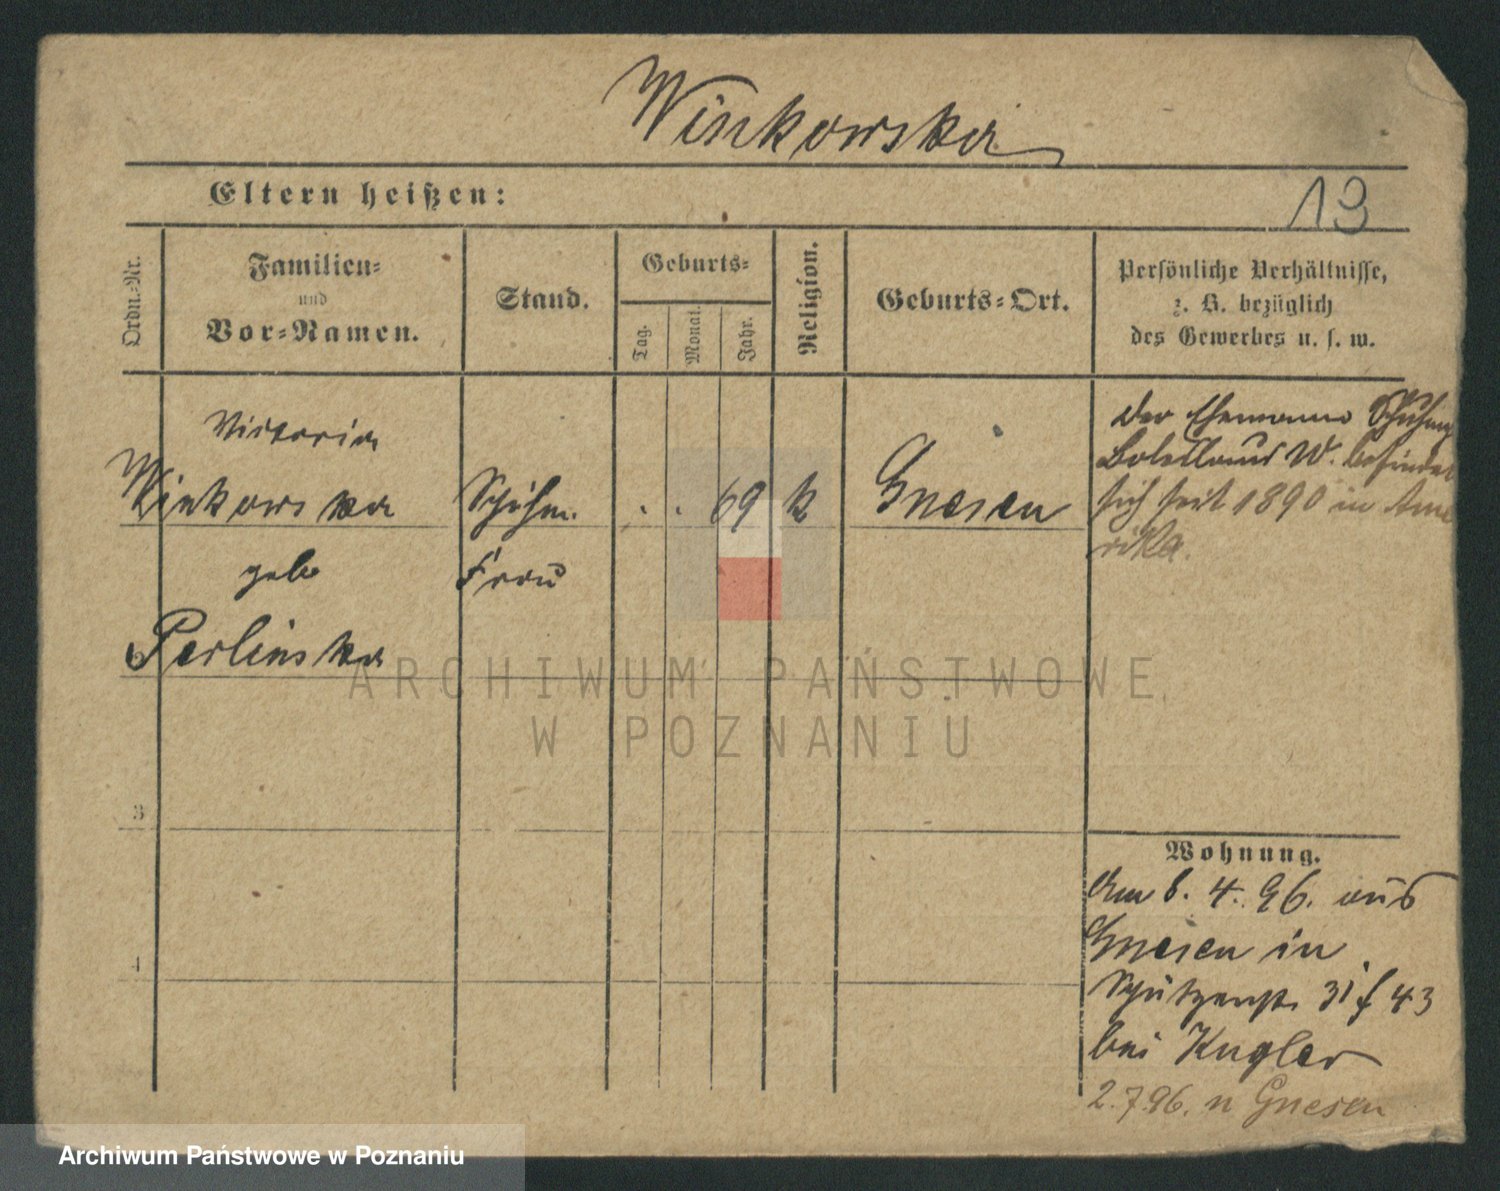 Winkowska
Eltern heißen:
13
Ordn.-Nr.
Familien-
und
Vor-Namen.
Stand.
Geburts-
Tag.
Monat.
Jahr.
Religion.
Geburts-Ort.
Persönliche Verhältnisse,
z. B. bezüglich
des Gewerbes u. s. w.
Victoria
Winkowska
geb
Perlinska
Schuhm.
Frau
. . 69
k
Gnesen
Der Ehemann Schuhm
Boleslaus W. befindet
sich seit 1890 in Ame
rika.
ARCHIWUM PAŃSTWOWE
W POZNANIU
3
4
Wohnung.
Am 6. 4. 96. aus
Gnesen in
Schützenstr. 31 f 43
bei Kugler
2.7.96. n Gnesen
Archiwum Państwowe w Poznaniu